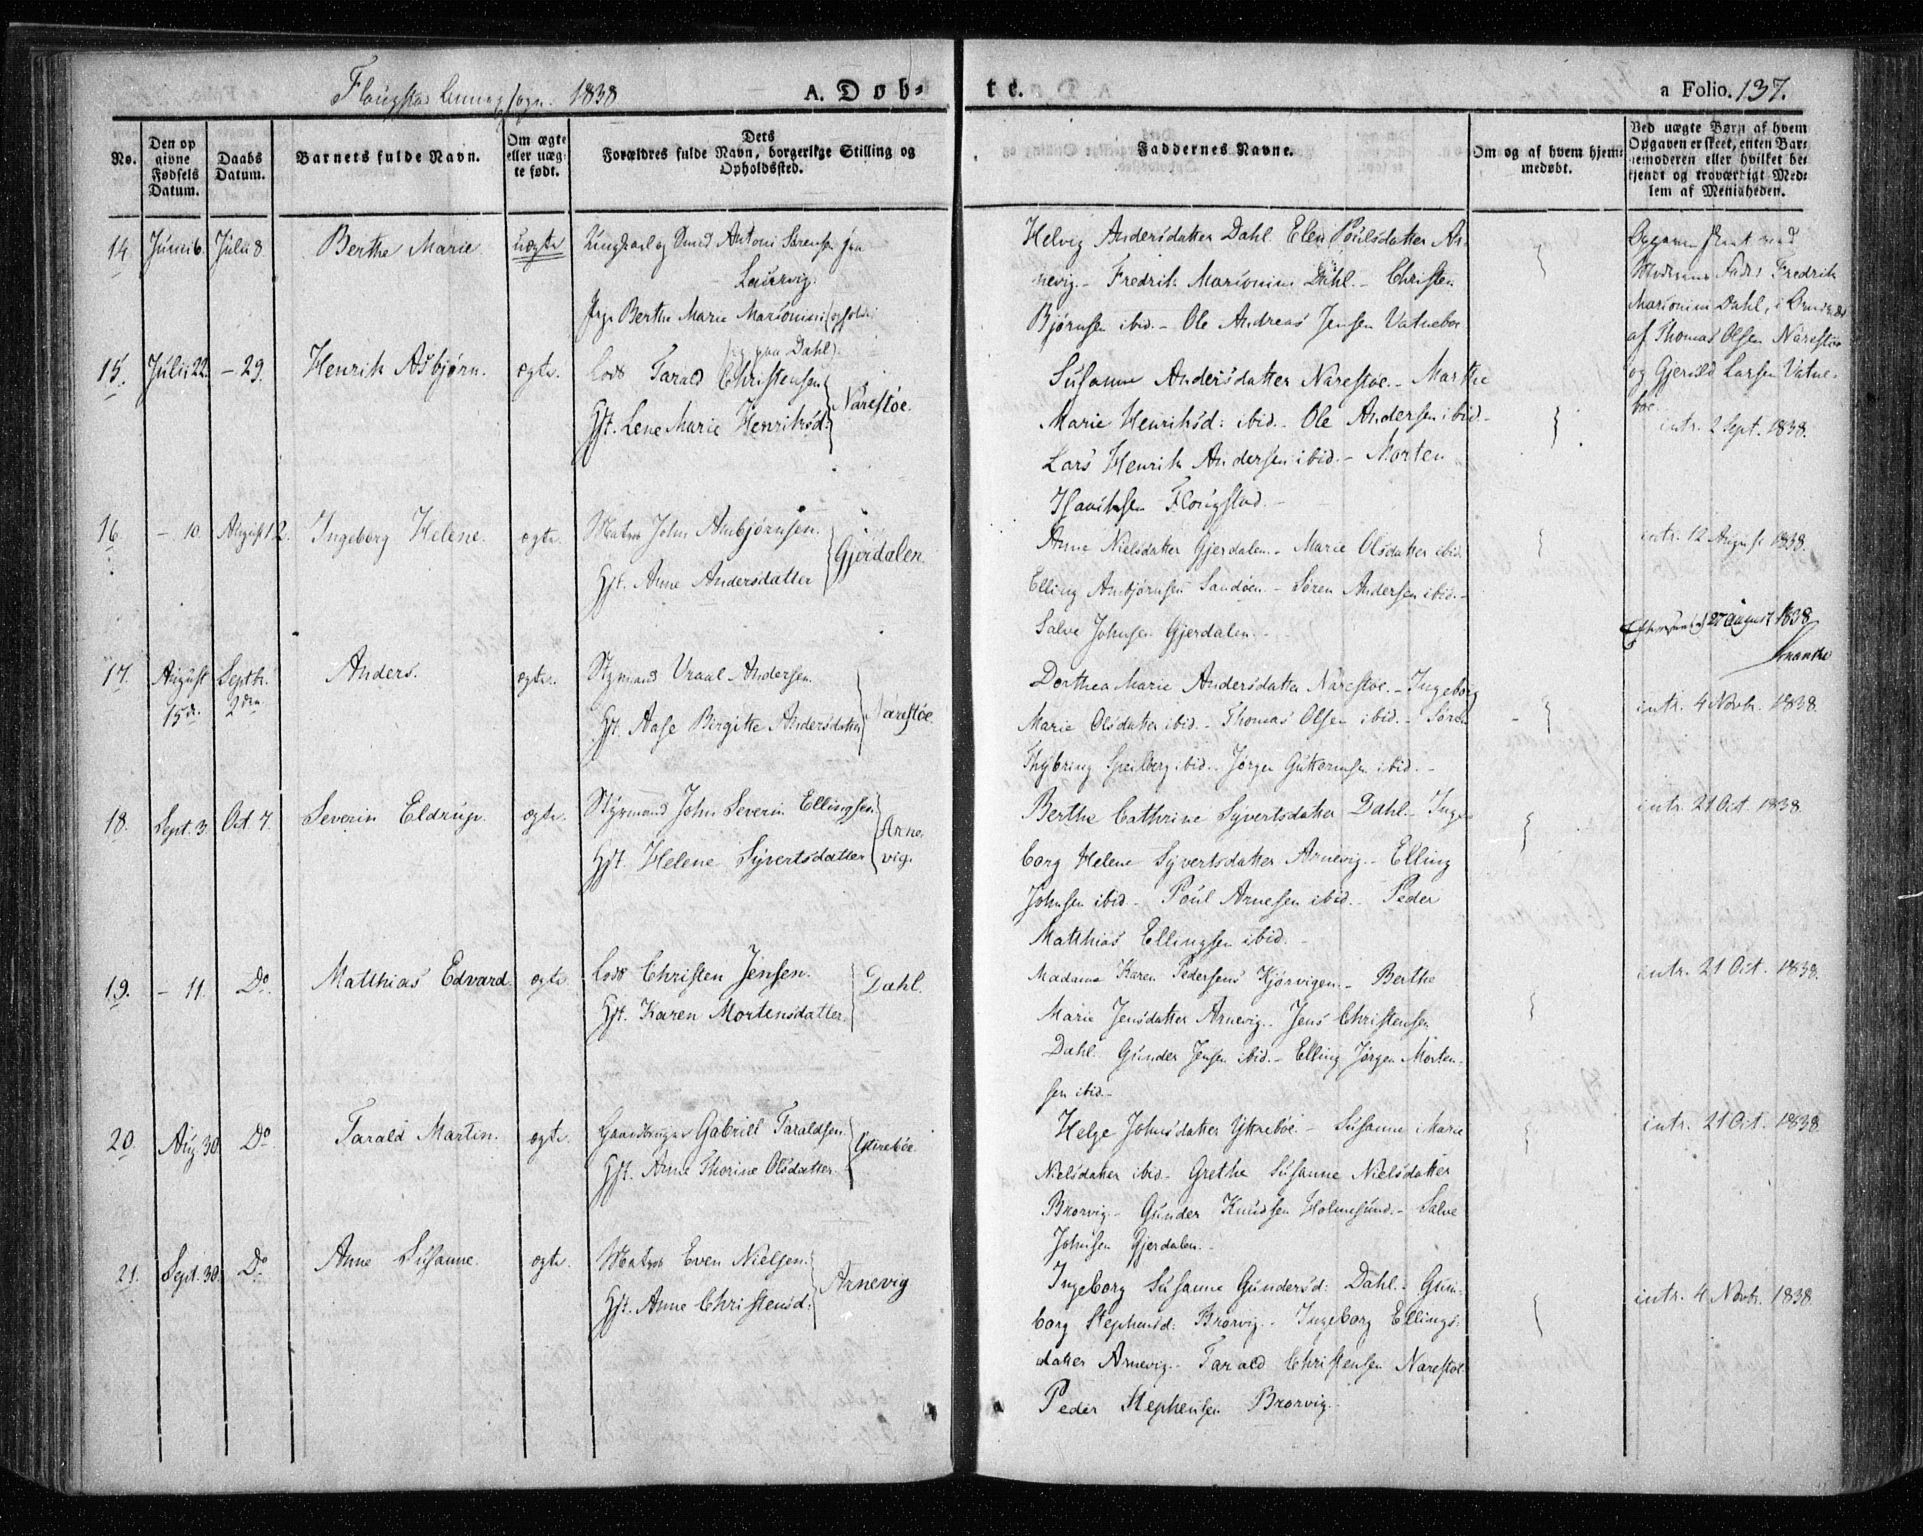 Flougstad Annexsogn. 1838
A. Døb-
te.
a Folio. 137.
No.
Den op
givne
Fødsels
Datum.
Daabs
Datum.
Barnets fulde Navn.
Om ægte
eller uæg-
te født.
Dets
Forældres fulde Navn, borgerlige Stilling og
Opholdssted.
Faddernes Navne.
Om og af hvem hjem-
medøbt.
Ved uægte Børn af hvem
Opgaven er skeet, enten Bar-
nemoderen eller hvilket be-
kjendt og troværdigt Med-
lem af Menigheden.
14 Juni 6. Juli 8 Berthe Marie uægte Ungkarl og Antoni Sørensen fra
Laurvig.
Pige Berthe Marie Marionini (opholder
sig paa Dahl).
Helvig Andersdatter Dahl. Elen Poulsdatter Ar-
nevig. - Fredrik Marionini Dahl. - Christen
Bjørnsen ibid. - Ole Andreas Jensen Vatneboe
Moderens Fader Fredrik
Marionini Dahl,
af Thomas Olsen Narestøe
og Gjeruld Larsen Vatne-
boe.
15. Juli 22. - 29. Henrik Asbjørn. ægte. Lods Tarald Christensen
Hst. Lene Marie Henriksd:
Narestøe.
Susanne Andersdatter Narestøe. - Marthe
Marie Henriksd: ibid. - Ole Andersen ibid. -
Lars Henrik Andersen ibid. - Morten
Flougstad. -
intr. 2 Sept. 1838.
16. - 10. August 12. Ingeborg Helene. ægte. Matros John Ambjørnsen.
Hst. Anne Andersdatter
Gjerdalen.
Anne Nielsdatter Gjerdalen. - Marie Olsdatter ibid.
Elling Ambjørnsen Sandøen. - Søren Andersen ibid. -
Salve Johnsen Gjerdalen. -
intr. 12 August 1838.
27 August 1838
17. August
15de. Septbr.
2den. Anders. ægte. Styrmand Vraal Andersen.
Hst. Aase Birgitte Andersdatter
Narestøe.
Dorthea Marie Andersdatter Narestøe. - Ingeborg
Marie Olsdatter ibid. - Thomas Olsen ibid. - Søren
Thybring Speilberg ibid. - Jørgen Guttormsen ibid. -
intr. 4 Novbr. 1838.
18. Sept. 3. Oct. 7. Severin Eldrup. ægte. Styrmand John Severin Ellingsen
Hst. Helene Syvertsdatter
Arne-
vig.
Berthe Cathrine Syvertsdatter Dahl. - Inge-
borg Helene Syvertsdatter Arnevig. - Elling
Johnsen ibid. - Poul Arnesen ibid. - Peder
Matthias Ellingsen ibid. -
intr. 21 Oct. 1838.
19. - 11. Do. Matthias Edvard. ægte. Lods Christen Jensen.
Hst. Karen Mortensdatter.
Dahl.
Madame Karen Pedersens Kjørvigen. - Berthe
Marie Jensdatter Arnevig. - Jens Christensen
Dahl. Gunder Jensen ibid. - Elling Jørgen Morten-
sen ibid. -
intr. 21 Oct. 1838.
20. Aug 30. Do. Tarald Martin. ægte. Gaardbruger Gabriel Taraldsen
Hst. Anne Thorine Olsdatter.
Yttrebøe.
Helge Johnsdatter Yttrebøe. - Susanne Marie
Nielsdatter ibid. - Grethe Susanne Nielsdatter
Brorvig. - Gunder Knudsen Holmesund. - Salve
Johnsen Gjerdalen. -
intr. 21 Oct. 1838.
21. Sept. 30. Do. Anne Susanne. ægte. Matros Even Nielsen.
Hst. Anne Christensd:
Arnevig
Ingeborg Susanne Gundersd: Dahl. - Gun-
borg Stephensd: Brorvig. - Ingeborg Ellings-
datter Arnevig. - Tarald Christensen Narestøe
Peder Stephensen Brorvig.
intr. 4 Novbr. 1838